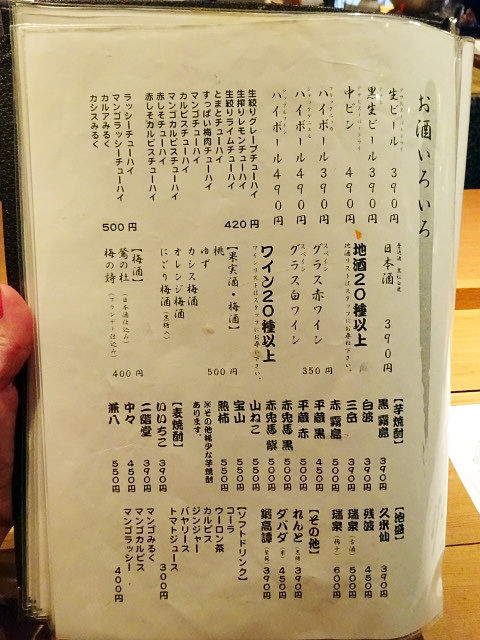 お酒いろいろ
生ビール 390円
黒生ビール 390円
中ビン 490円
ハイボール 390円
ハイボール 490円
ハイボール 490円
生絞りグレープチューハイ
生搾りレモンチューハイ
生絞りライムチューハイ
とまとチューハイ
すっぱい梅肉チューハイ 420円
マンゴチューハイ
カルピスチューハイ
マンゴカルピスチューハイ
赤しそチューハイ
赤しそカルピスチューハイ
ラッシーチューハイ
マンゴラッシーチューハイ
カルアみるく
カシスみるく 500円
日本酒 390円
地酒20種以上
地酒リストはスタッフにお尋ね下さい。
スペイン
グラス赤ワイン
スペイン
グラス白ワイン 350円
ワイン20種以上
ワインリストはスタッフにお尋ね下さい。
【果実酒・梅酒】
桃
ゆず
カシス梅酒
オレンジ梅酒
にごり梅酒(黒糖入) 500円
【梅酒】
鶯の杜(日本酒仕込み)
梅の詩(ブランデー仕込み) 400円
【芋焼酎】
黒霧島 390円
白波 390円
三岳 500円
赤霧島 500円
平蔵 黒 450円
平蔵 赤
赤兎馬 黒 500円
赤兎馬 紫 500円
山ねこ 500円
宝山 550円
熟柿 550円
※その他稀少な芋焼酎あります。
【麦焼酎】
いいちこ 390円
二階堂 390円
中々 450円
兼八 550円
【泡盛】
久米仙 390円
残波 450円
瑞泉(古酒) 500円
瑞泉(梅子) 600円
【その他】
れんと(黒糖) 390円
ダバダ(栗) 450円
鍛高譚(紫蘇) 390円
【ソフトドリンク】
コーラ
ウーロン茶
カルピス
ジンジャー
バヤリース
トマトジュース 300円
マンゴみるく
マンゴカルピス
マンゴラッシー 400円